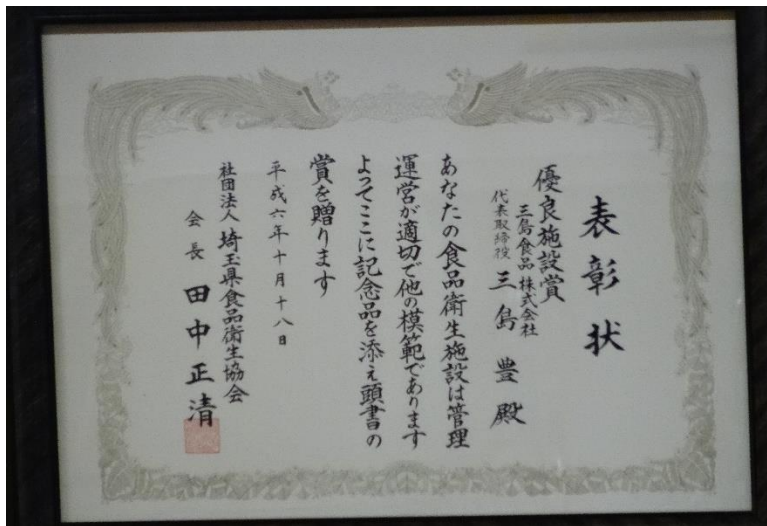 表彰状
優良施設賞
三島食品株式会社
代表取締役 三島豊殿
あなたの食品衛生施設は管理
運営が適切で他の模範であります
よってここに記念品を添え頭書の
賞を贈ります
平成六年十月十八日
社団法人 埼玉県食品衛生協会
会長 田中正清